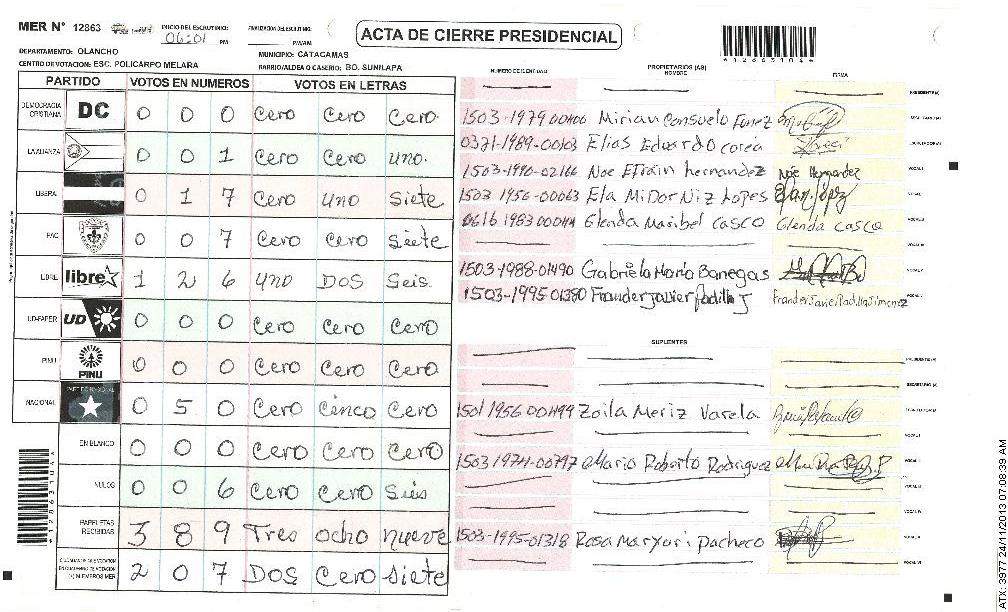 MER N° 12863 INICIO DEL ESCRUTINIO: 06:01 PM FINALIZACION DEL ESCRUTINIO: PM/AM
ACTA DE CIERRE PRESIDENCIAL
DEPARTAMENTO: OLANCHO MUNICIPIO: CATACAMAS
CENTRO DE VOTACION: ESC. POLICARPO MELARA BARRIO/ALDEA O CASERIO: BO. SUNILAPA
PARTIDO VOTOS EN NUMEROS VOTOS EN LETRAS
DEMOCRACIA CRISTIANA DC 0 0 0 Cero Cero Cero
LA ALIANZA 0 0 1 Cero Cero uno.
LIBERAL 0 1 7 Cero uno Siete
PAC 0 0 7 Cero Cero Siete
LIBRE libre 1 2 6 uno DOS Seis.
UD-FAPER UD 0 0 0 Cero Cero Cero
PINU PINU 0 0 0 Cero Cero Cero
NACIONAL PARTIDO NACIONAL 0 5 0 Cero Cinco Cero
EN BLANCO 0 0 0 Cero Cero Cero
NULOS 0 0 6 Cero Cero Sies
PAPELETAS RECIBIDAS 3 8 9 Tres ocho nueve
2 0 7 DOS Cero Siete
NUMERO DE IDENTIDAD PROPIETARIOS (AS) NOMBRE FIRMA
PRESIDENTE(A)
1503-1979 00400 Mirian Consuelo Funez SECRETARIO(A)
0321-1989-00103 Elias Eduardo corea ESCRUTADOR(A)
1503-1990-02166 Noe Efrain hernandez Noe Hernandez VOCAL I
1503 1956-00063 Ela MiDor Niz Lopes VOCAL II
0616 1983 00044 Glenda Maribel casco Glenda casco VOCAL III
VOCAL IV
1503-1988-01490 Gabriela Maria Banegas VOCAL V
1503-1995-01380 Frander Javier Padilla J Frander Javier Padilla Jimenez
SUPLENTES
PRESIDENTE(A)
SECRETARIO(A)
1501 1956 00499 Zoila Meriz Varela ESCRUTADOR(A)
VOCAL I
1503 1974-00797 Mario Roberto Rodriguez
VOCAL III
VOCAL IV
1503-1995-01318 Rosa Maryuri pacheco VOCAL V
VOCAL VI
ATX: 3977 24/11/2013 07:08:39 AM